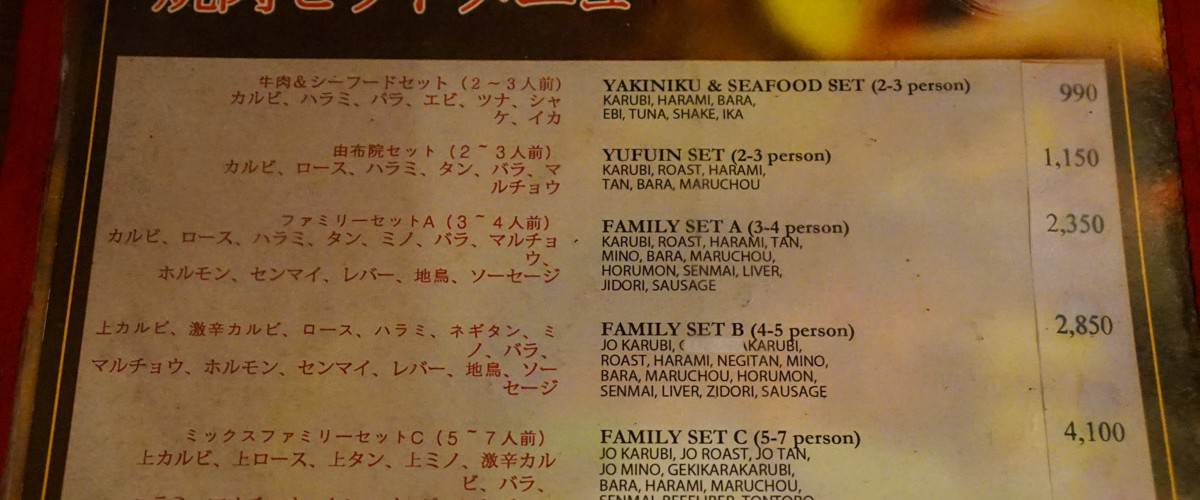 牛肉&シーフードセット（２～３人前）
カルビ、ハラミ、バラ、エビ、ツナ、シャ
ケ、イカ
YAKINIKU & SEAFOOD SET (2-3 person)
KARUBI, HARAMI, BARA,
EBI, TUNA, SHAKE, IKA
990
由布院セット（２～３人前）
カルビ、ロース、ハラミ、タン、バラ、マ
ルチョウ
YUFUIN SET (2-3 person)
KARUBI, ROAST, HARAMI,
TAN, BARA, MARUCHOU
1,150
ファミリーセットA（３～４人前）
カルビ、ロース、ハラミ、タン、ミノ、バラ、マルチョ
ウ、
ホルモン、センマイ、レバー、地鳥、ソーセージ
FAMILY SET A (3-4 person)
KARUBI, ROAST, HARAMI, TAN,
MINO, BARA, MARUCHOU,
HORUMON, SENMAI, LIVER,
JIDORI, SAUSAGE
2,350
上カルビ、激辛カルビ、ロース、ハラミ、ネギタン、ミ
ノ、バラ、
マルチョウ、ホルモン、センマイ、レバー、地鳥、ソー
セージ
FAMILY SET B (4-5 person)
JO KARUBI, AKARUBI,
ROAST, HARAMI, NEGITAN, MINO,
BARA, MARUCHOU, HORUMON,
SENMAI, LIVER, ZIDORI, SAUSAGE
2,850
ミックスファミリーセットC（５～７人前）
上カルビ、上ロース、上タン、上ミノ、激辛カル
ビ、バラ、
FAMILY SET C (5-7 person)
JO KARUBI, JO ROAST, JO TAN,
JO MINO, GEKIKARAKARUBI,
BARA, HARAMI, MARUCHOU,
4,100